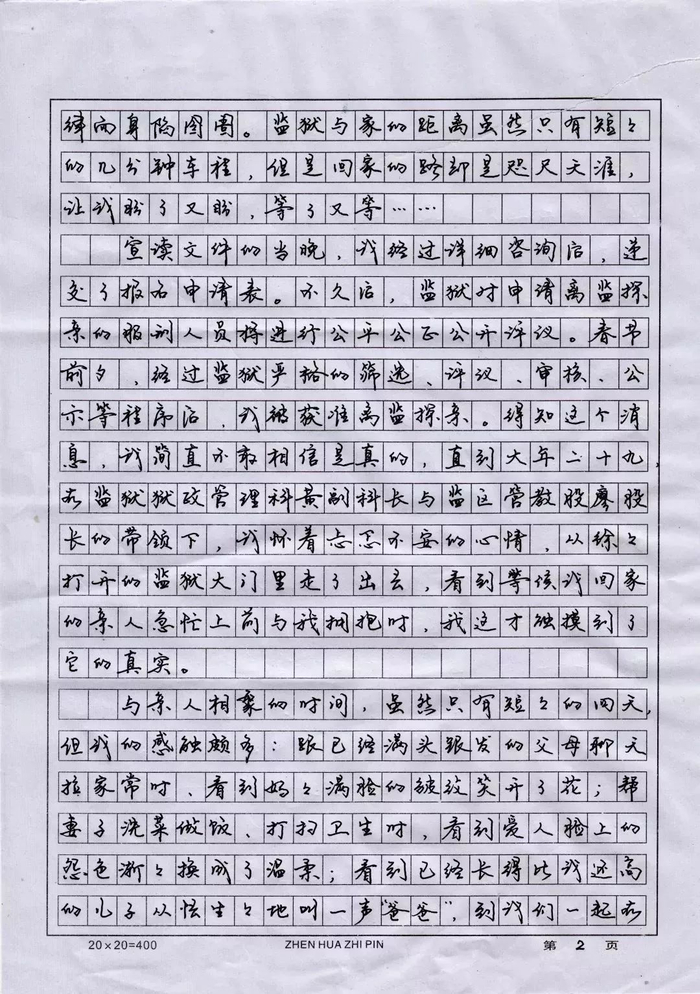 律而身陷囹圄。监狱与家的距离虽然只有短々
的几分钟车程，但是回家的路却是咫尺天涯，
让我盼了又盼，等了又等……
宣读文件的当晚，我经过详细咨询后，递
交了报名申请表。不久后，监狱对申请离监探
亲的服刑人员将进行公平公正公开评议。春节
前夕，经过监狱严格的筛选、评议、审核、公
示等程序后，我被获准离监探亲。得知这个消
息，我简直不敢相信是真的，直到大年二十九，
在监狱狱政管理科黄副科长与监区管教股廖股
长的带领下，我怀着忐忑不安的心情，从徐々
打开的监狱大门里走了出去，看到等候我回家
的亲人急忙上前与我拥抱时，我这才触摸到了
它的真实。
与亲人相聚的时间，虽然只有短々的四天，
但我的感触颇多：跟已经满头银发的父母聊天
拉家常时、看到妈々满脸的皱纹笑开了花；帮
妻子洗菜做饭、打扫卫生时，看到爱人脸上的
怨色渐々换成了温柔；看到已经长得比我还高
的儿子从怯生々地叫一声“爸爸”，到我们一起在
20×20=400 ZHEN HUA ZHI PIN 第 2 页